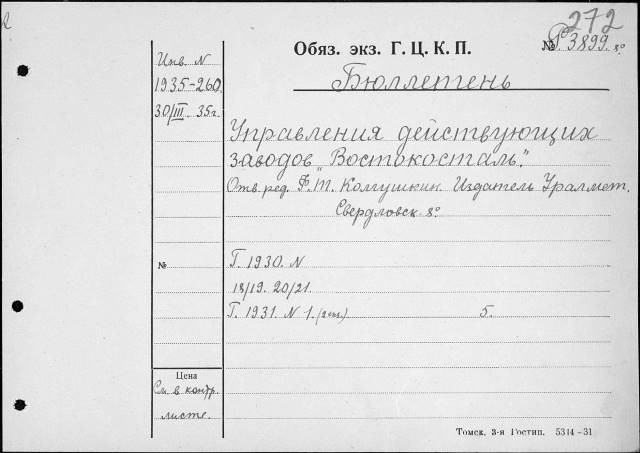 272
Обяз. экз. Г. Ц. К. П.
№ 3899. 8°
Бюллетень
Инв. N
1935-260
30/III 35 г.
Управления действующих
заводов "Востокосталь".
Отв. ред. Ф. Т. Колгушкин. Издатель Уралмет.
Свердловск 8°
№
Г. 1930. N
18/19. 20/21.
Г. 1931. N 1. (2 экз.) 5.
Цена
См. в контр.
листе.
Томск. 3-я Гостип. 5314-31